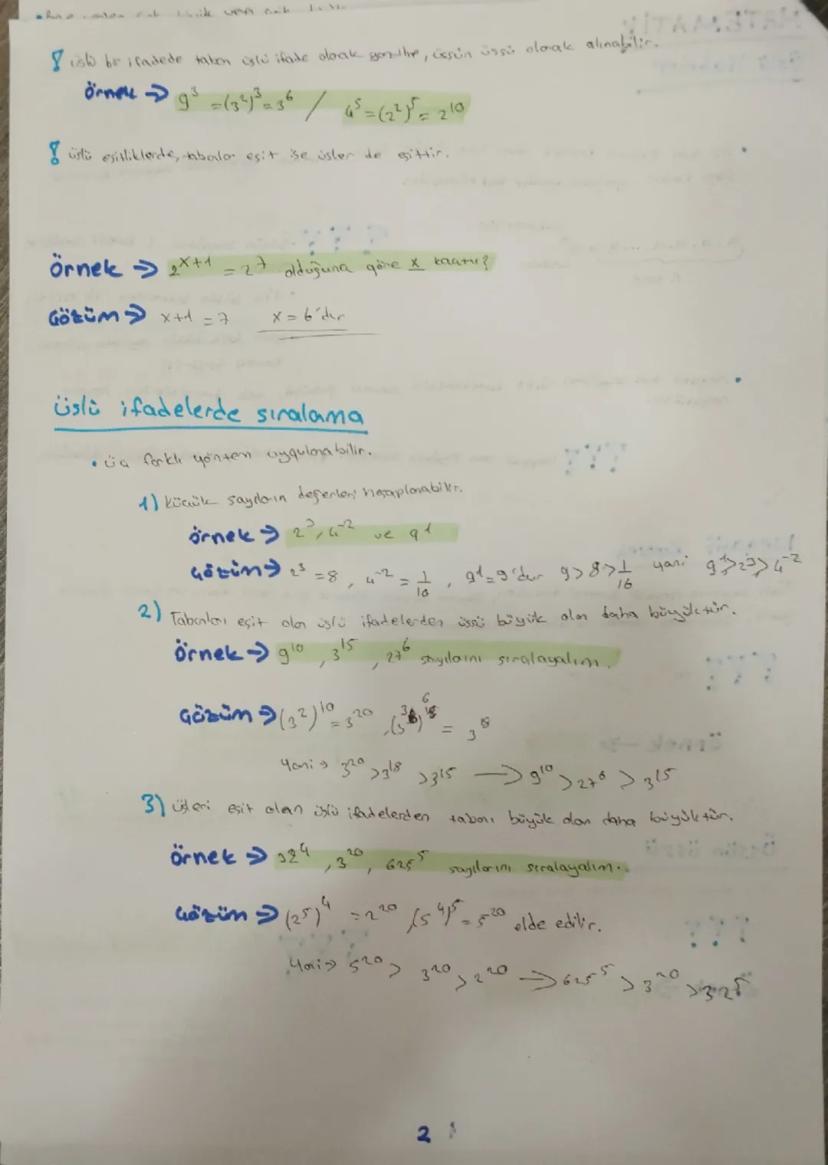 ! üslü bir ifadede taban üslü ifade olarak yazılıp, üssün üssü olarak alınabilir.
örnek → 9³ = (3²)³ = 3⁶ / 4⁵ = (2²)⁵ = 2¹⁰
! üslü eşitliklerde, tabanlar eşit ise üsler de eşittir.
örnek → 2ˣ⁺¹ = 2⁷ olduğuna göre x kaçtır?
çözüm → x+1 = 7 x = 6'dır
üslü ifadelerde sıralama
• üç farklı yöntem uygulanabilir.
1) Küçük sayıların değerleri hesaplanabilir.
örnek → 2³, 4⁻² ve 9¹
çözüm → 2³ = 8, 4⁻² = 1/16, 9¹ = 9'dur 9 > 8 > 1/16 yani 9¹ > 2³ > 4⁻²
2) Tabanları eşit olan üslü ifadelerden üssü büyük olan daha büyüktür.
örnek → 9¹⁰, 3¹⁵, 27⁶ sayılarını sıralayalım.
çözüm → (3²)¹⁰ = 3²⁰, (3³)⁶ = 3⁸
Yani → 3²⁰ > 3¹⁸ > 3¹⁵ → 9¹⁰ > 27⁶ > 3¹⁵
3) üsleri eşit olan üslü ifadelerden tabanı büyük olan daha büyüktür.
örnek → 32⁴, 3²⁰, 625⁵ sayılarını sıralayalım.
çözüm → (2⁵)⁴ = 2²⁰, (5⁴)⁵ = 5²⁰ elde edilir.
Yani → 5²⁰ > 3²⁰ > 2²⁰ → 625⁵ > 3²⁰ > 32⁵
2